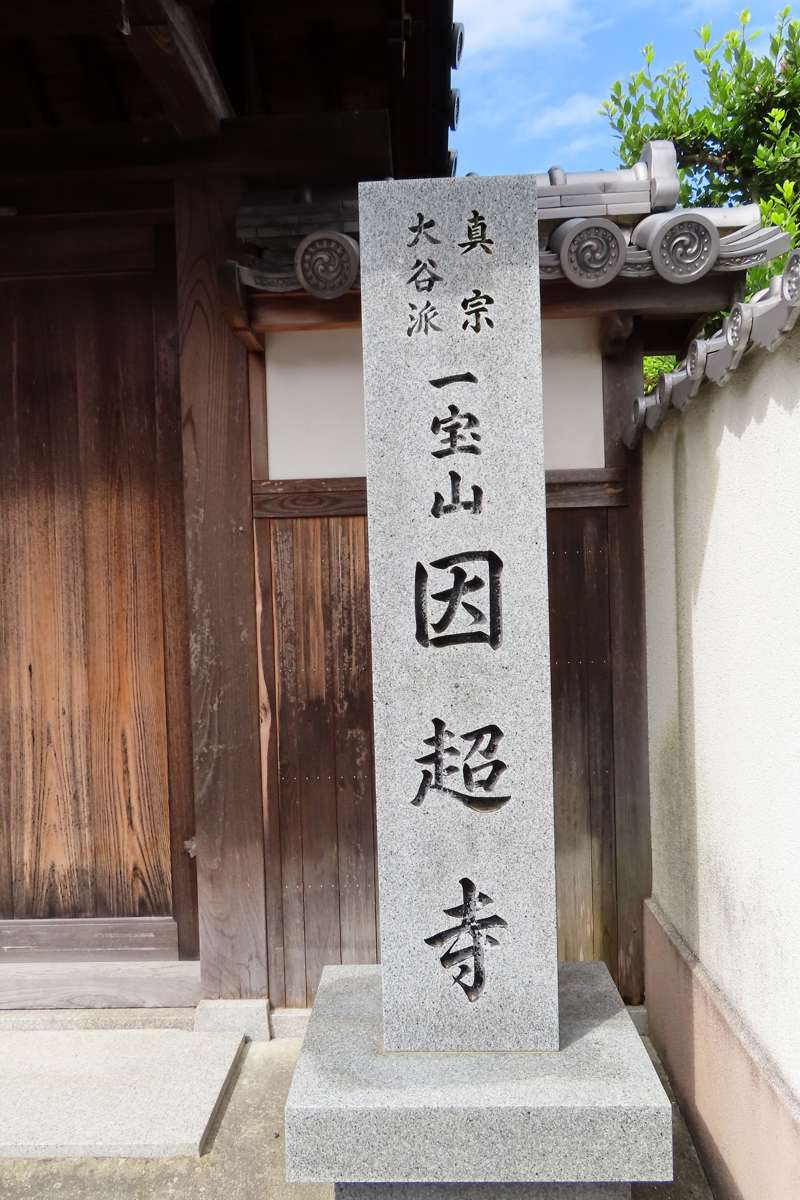 真宗
大谷派
一宝山
因超寺